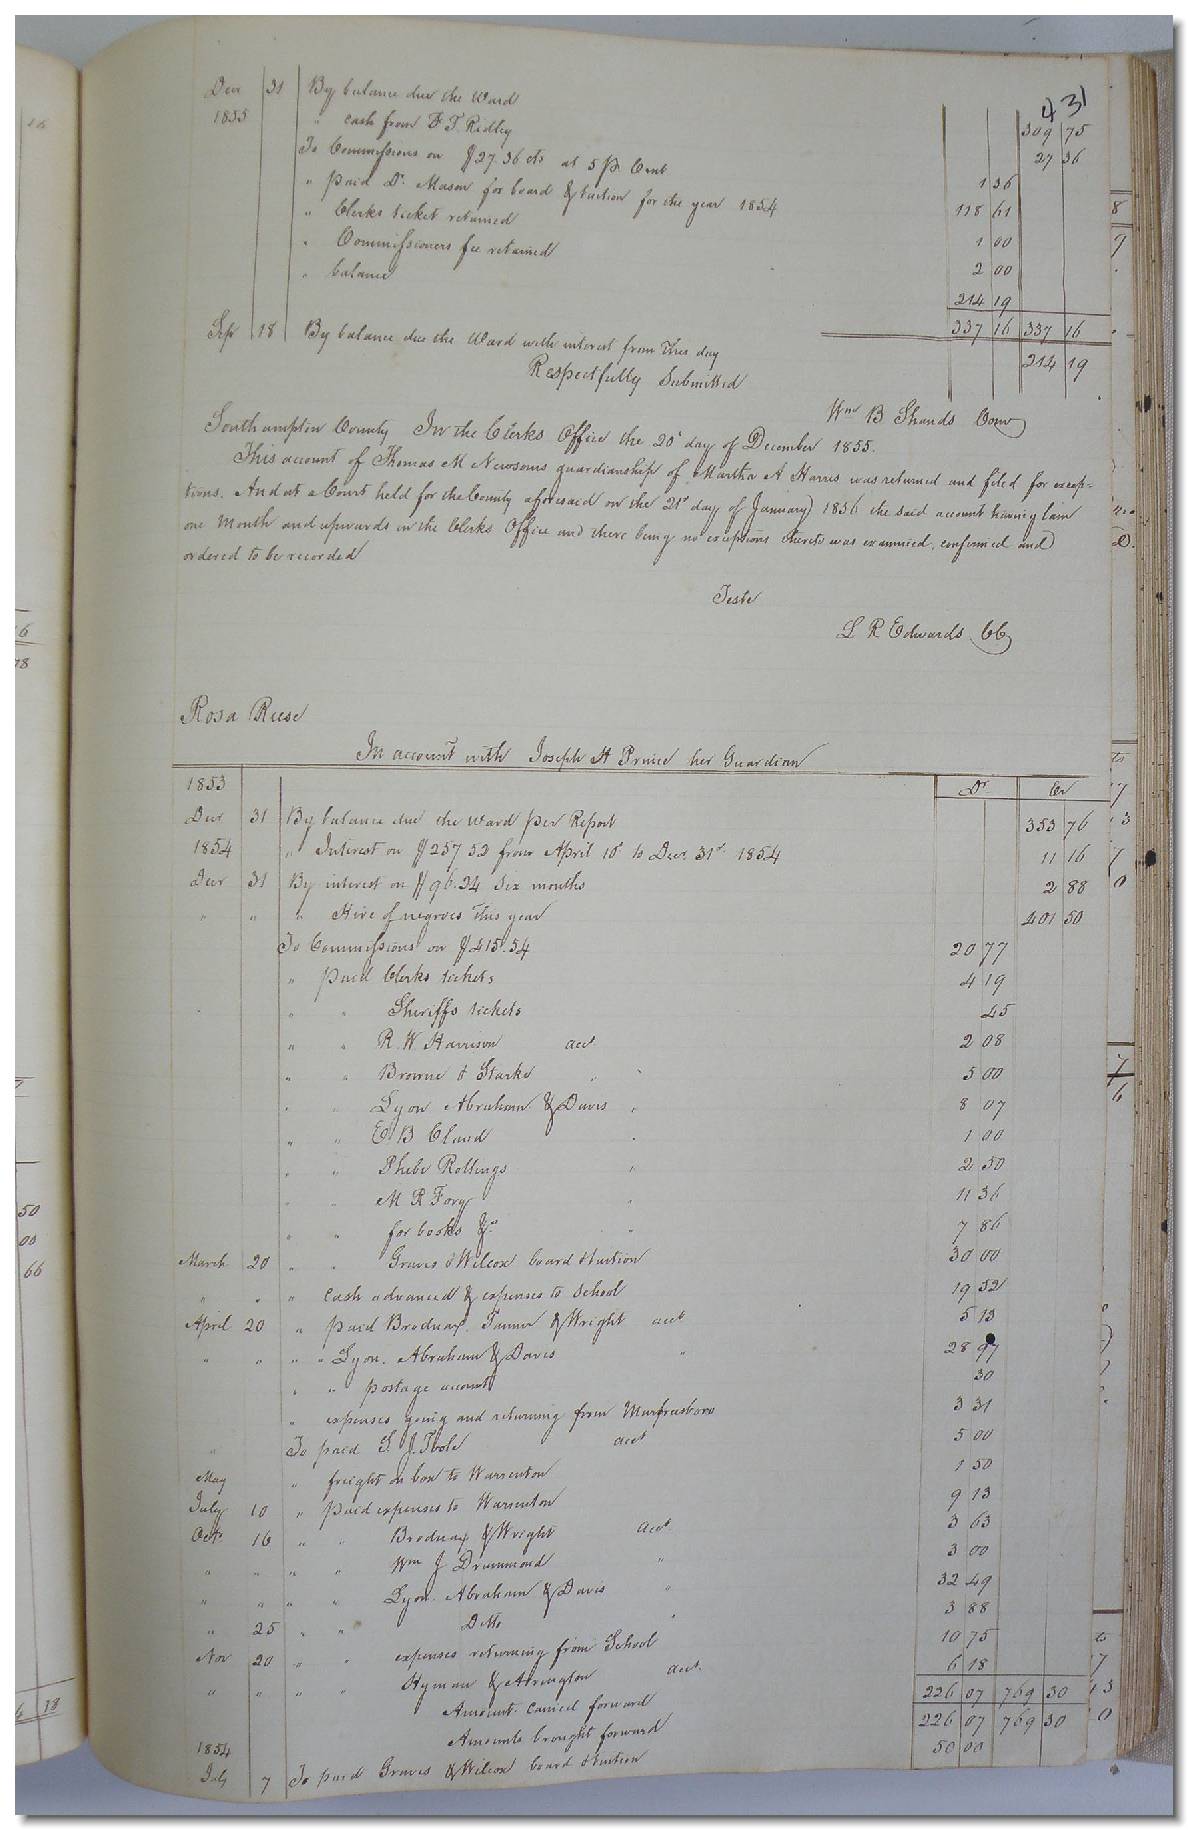 431
Decr 31 By balance due the Ward 309 75
1855 " cash from F T. Ridley 27 36
To Commissions on $27.36 cts at 5 pr Cent 1 36
" paid Dr. Mason for board & tuition for the year 1854 118 61
" Clerks ticket retained 1 00
" Commissioners fee retained 2 00
" balance 214 19
337 16 337 16
Sep 18 By balance due the Ward with interest from this day 214 19
Respectfully Submitted
Wm B Shands Com
Southampton County In the Clerks Office the 20th day of December 1855.
This account of Thomas M Newsoms guardianship of Martha A Harris was returned and filed for excep-
tions. And at a Court held for the County aforesaid on the 21st day of January 1856 the said account having lain
one Month and upwards in the Clerks Office and there being no exceptions thereto was examined, confirmed and
ordered to be recorded
Teste
L R Edwards CC
Rosa Reese
In account with Joseph H Prince her Guardian
1853 Dr Cr
Decr 31 By balance due the ward per Report 353 76
1854 " Interest on $257 52 from April 10th to Decr 31st 1854 11 16
Decr 31 By interest on $96.24 Six months 2 88
" " " Hire of negroes this year 401 50
To Commissions on $415.54 20 77
" paid Clerks tickets 4 19
" " Sheriffs tickets 45
" " R. W. Harrison acct 2 08
" " Browne & Starke " 5 00
" " Lyon Abraham & Davis " 8 07
" " E B Claud " 1 00
" " Phebe Rollings " 2 50
" " M R Fory " 11 36
" " for books &c " 7 86
March 20 " " Graves & Wilcox board & tuition 30 00
" " " cash advanced & expenses to School 19 32
April 20 " paid Brodnax, Tanner & Wright acct 5 13
" " " " Lyon, Abraham & Davis " 28 97
" " postage account 30
" expenses going and returning from Murfreesboro 3 31
" To paid S. J. Toole acct 5 00
May " freight on box to Warrenton 1 50
July 10 " paid expenses to Warrenton 9 13
Oct 16 " " Brodnax & Wright acct 3 63
" " " " Wm J Drummond " 3 00
" " " " Lyon, Abraham & Davis " 32 49
" 25 " " Ditto " 3 88
Nov 20 " " expenses returning from School 10 75
" " " " Hyman & Arrington acct. 6 18
Amount carried forward 226 07 769 30
Amounts brought forward 226 07 769 30
1854
July 7 To paid Graves & Wilcox board & tuition 50 00